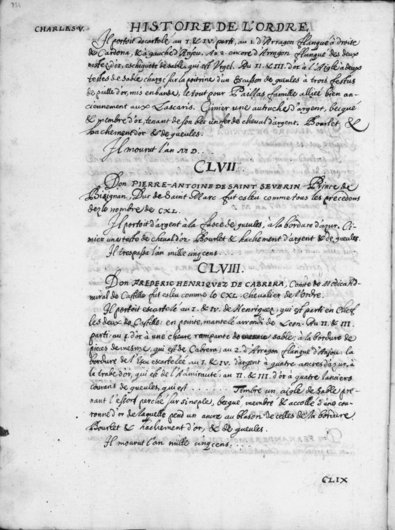 CHARLES V. HISTOIRE DE L'ORDRE
Il portoit escartelé au I. & IV. parti, au 1. d'Arragon flanqué à droite
de Cardona, & à gauche d'Anjou. Au 2. encore d'Arragon flanqué des deux
d'or, eschiqueté de sable, qui est Vrgel. Au II. & III. d'or à l'Aigle à deux
testes de sable, chargé sur la poitrine d'un Escusson de gueules à trois
d'or, mis en bande, le tout pour Paillas famille alliée bien an-
ciennement aux Lascaris. Cimier une autruche d'argent, becquée
& membrée d'or, tenant de son bec un fer de cheval d'argent. Bourlet, &
hachement d'or & de gueules.
Il mourut l'an M D
CLVII.
Don PIERRE-ANTOINE DE SAINT SEVERIN Prince de
Bisignan, Duc de Saint Marc fut esleu comme tous les precedens
le nombre de CXL.
Il portoit d'argent à la fasce de gueules, à la bordure d'azur. Ci-
mier une teste de cheval d'or. Bourlet & hachement d'argent & de gueules.
Il trespassa l'an mille cinq cens
CLVIII.
Don FREDERIC HENRIQUEZ DE CABRERA, Conte de Modica Ad-
miral de Castille fut esleu comme le CXL. Chevalier de l'Ordre.
Il portoit escartelé au I. & IV. de Henriquez, qui est parti en Chef
les deux de Castille: en pointe, mantelé arrondi de Leon. Au II. & III.
parti, au 1. d'or à une chevre rampante de sable, à la bordure de
pieces de mesme, qui est de Cabrera; au 2. d'Arragon flanqué d'Anjou. la
bordure de l'Escu escartelée au I. & IV. d'argent à quatre ancres d'azur, à
la trabe d'or, qui est de l'Amirauté; au II. & III. d'or à quatre
de gueules, qui est .... Timbre un aigle de sable pre-
nant l'essort perché sur sinople, becqué, membré & accollé d'une cou-
ronne d'or de laquelle pend un ancre au blason de celles de la bordure
Bourlet & hachement d'or, & de gueules.
Il mourut l'an mille cinq cens
CLIX